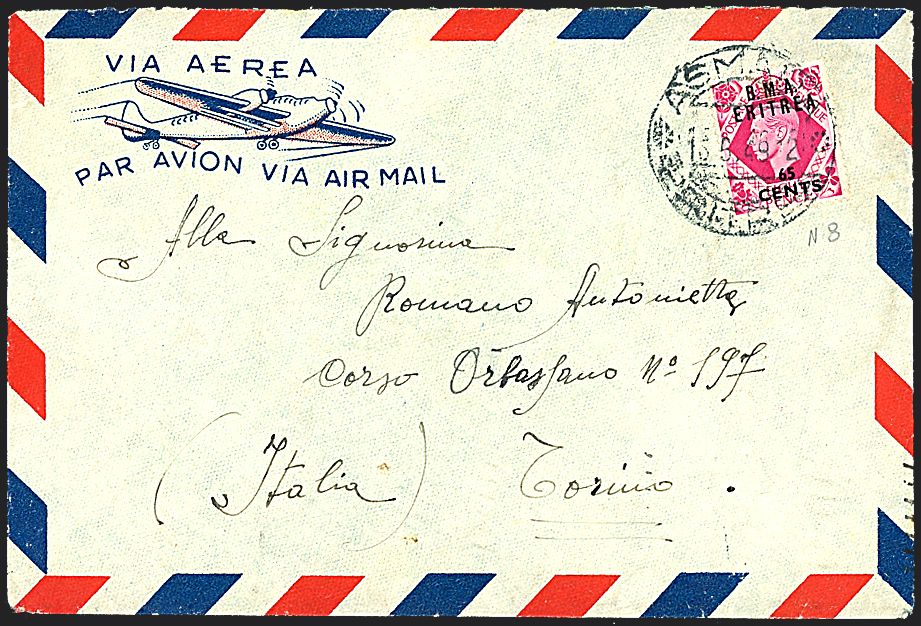 VIA AEREA
PAR AVION VIA AIR MAIL
ASMARA
B.M.A.
ERITREA
65
CENTS
N 8
Alla Signorina
Romano Antonietta
Corso Orbassano Nº 197
(Italia) Torino.